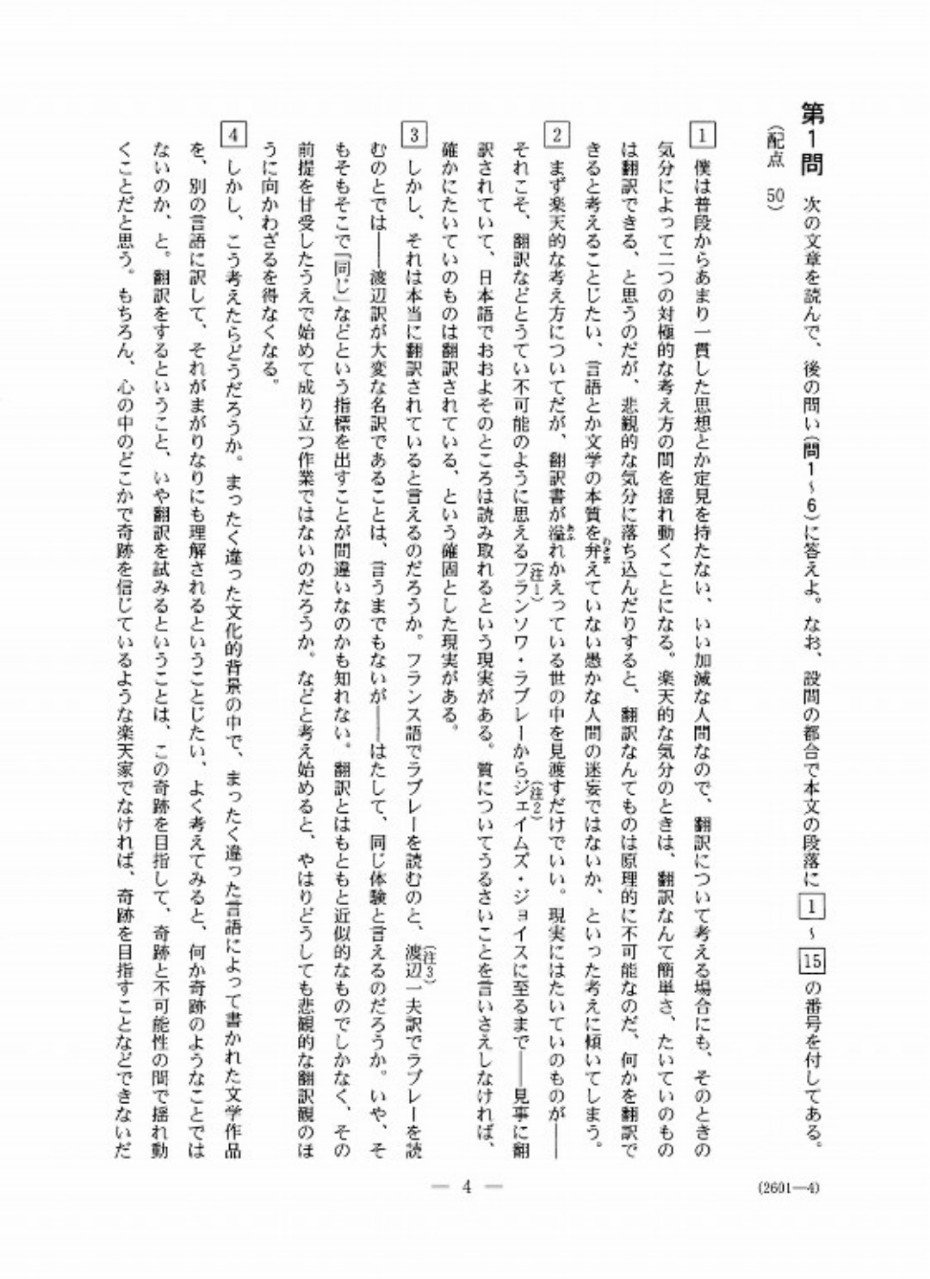 第1問 次の文章を読んで、後の問い(問1~6)に答えよ。なお、設問の都合で本文の段落に 1 ~ 15 の番号を付してある。
(配点 50)
1 僕は普段からあまり一貫した思想とか定見を持たない、いい加減な人間なので、翻訳について考える場合にも、そのときの
気分によって二つの対極的な考え方の間を揺れ動くことになる。楽天的な気分のときは、翻訳なんて簡単さ、たいていのもの
は翻訳できる、と思うのだが、悲観的な気分に落ち込んだりすると、翻訳なんてものは原理的に不可能なのだ、何かを翻訳で
きると考えることじたい、言語とか文学の本質を弁えていない愚かな人間の迷妄ではないか、といった考えに傾いてしまう。
わきま
2 まず楽天的な考え方についてだが、翻訳書が溢れかえっている世の中を見渡すだけでいい。現実にはたいていのものが——
あふ
それこそ、翻訳などとうてい不可能のように思えるフランソワ・ラブレーからジェイムズ・ジョイスに至るまで——見事に翻
(注1)
(注2)
訳されていて、日本語でおおよそのところは読み取れるという現実がある。質についてうるさいことを言いさえしなければ、
確かにたいていのものは翻訳されている、という確固とした現実がある。
3 しかし、それは本当に翻訳されていると言えるのだろうか。フランス語でラブレーを読むのと、渡辺一夫訳でラブレーを読
(注3)
むのとでは——渡辺訳が大変な名訳であることは、言うまでもないが——はたして、同じ体験と言えるのだろうか。いや、そ
もそもそこで「同じ」などという指標を出すことが間違いなのかも知れない。翻訳とはもともと近似的なものでしかなく、その
前提を甘受したうえで始めて成り立つ作業ではないのだろうか。などと考え始めると、やはりどうしても悲観的な翻訳観のほ
うに向かわざるを得なくなる。
4 しかし、こう考えたらどうだろうか。まったく違った文化的背景の中で、まったく違った言語によって書かれた文学作品
を、別の言語に訳して、それがまがりなりにも理解されるということじたい、よく考えてみると、何か奇跡のようなことでは
ないのか、と。翻訳をするということ、いや翻訳を試みるということは、この奇跡を目指して、奇跡と不可能性の間で揺れ動
くことだと思う。もちろん、心の中のどこかで奇跡を信じているような楽天家でなければ、奇跡を目指すことなどできないだ
— 4 —
(2601—4)